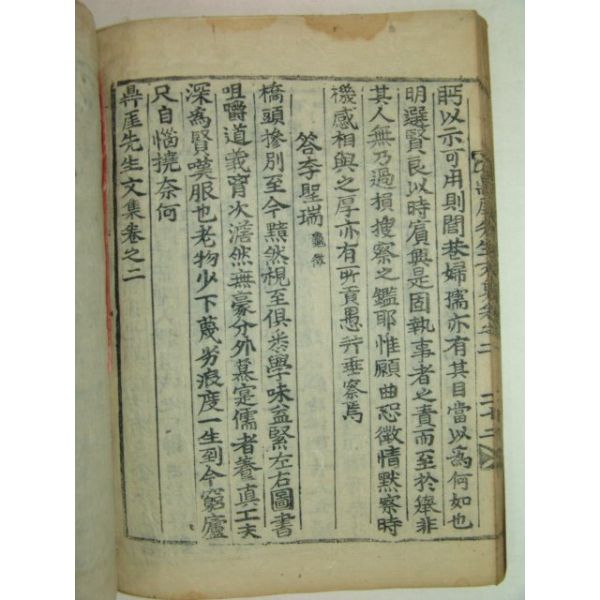 眄以示可用則閭巷婦孺亦有其目當以為何如也
明選賢良以時賓興是固執事者之責而至於舉非
其人無乃過損搜察之鑑耶惟願曲恕徵情默察時
機感相與之厚亦有所貢愚幷垂察焉
答李聖瑞 龜徵
橋頭摻別至今黯然視至俱悉學味益緊左右圖書
咀嚼道義胷次澹然無豪分外冀寔儒者養真工夫
深為賢嘆服也老物少下蔑劣狠度一生到今窮廬
尺自惱撓奈何
鼎厓先生文集卷之二
先生文集卷之二 二十二